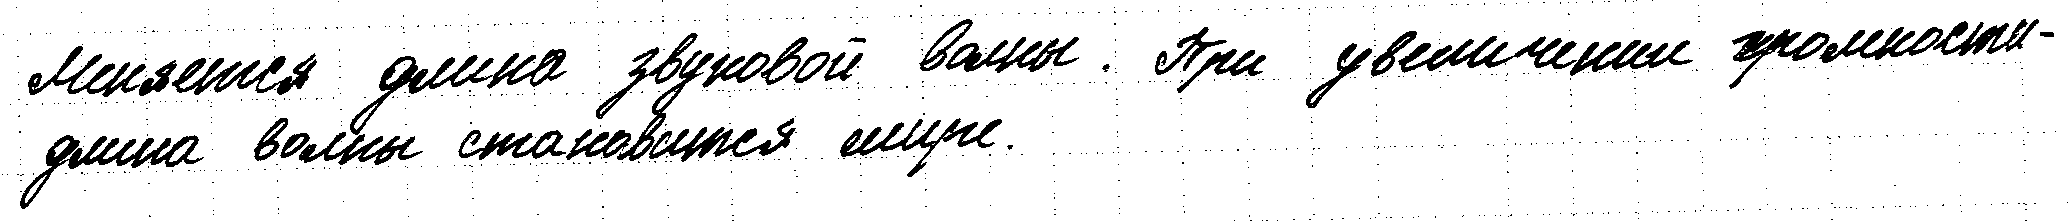 Меняется длина звуковой волны. При увеличении громкости-
длина волны становится шире.